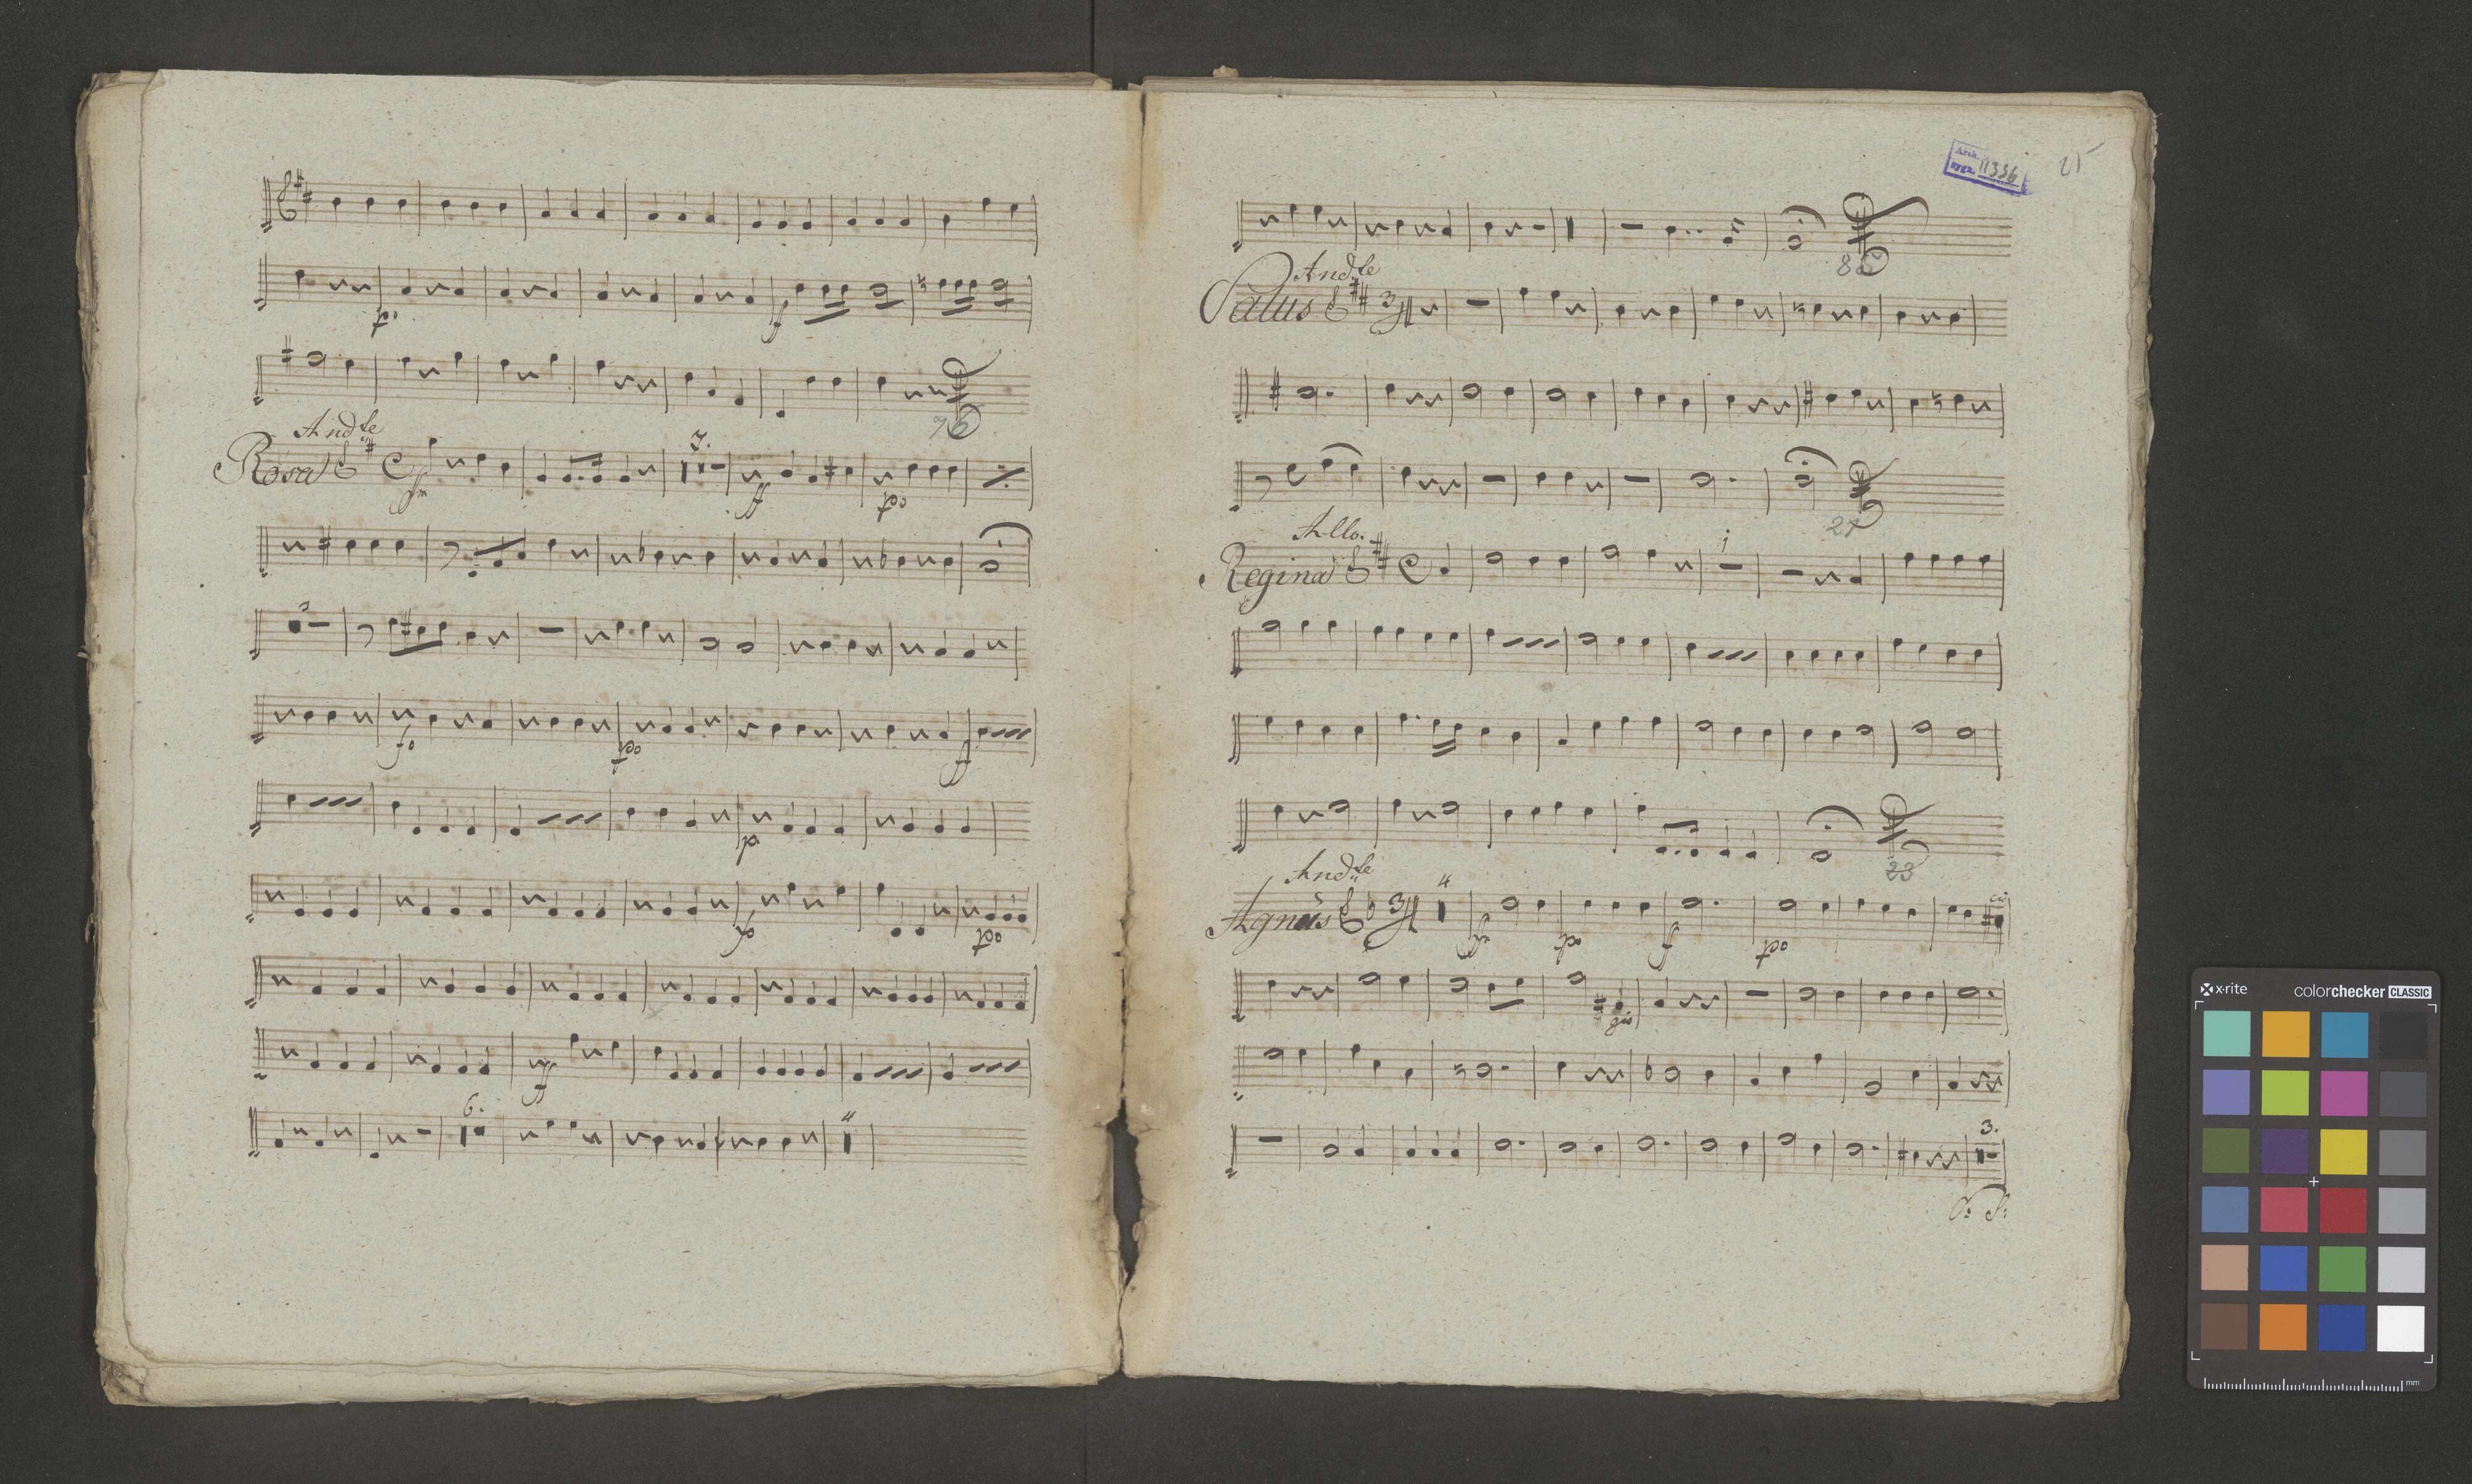 p.
f
76
Andte
Rosa
fm
7.
ff
po
2
fo
po
ff
p.
fo
po
ff
6.
4
Arch.
sygn. 11336
25
86
Andte
Salus
3
27
Allo.
Regina
1
23
Andte
Agnus
3
4
p
f
po
cis
gis
3.
V: S:
x-rite
colorchecker CLASSIC
mm